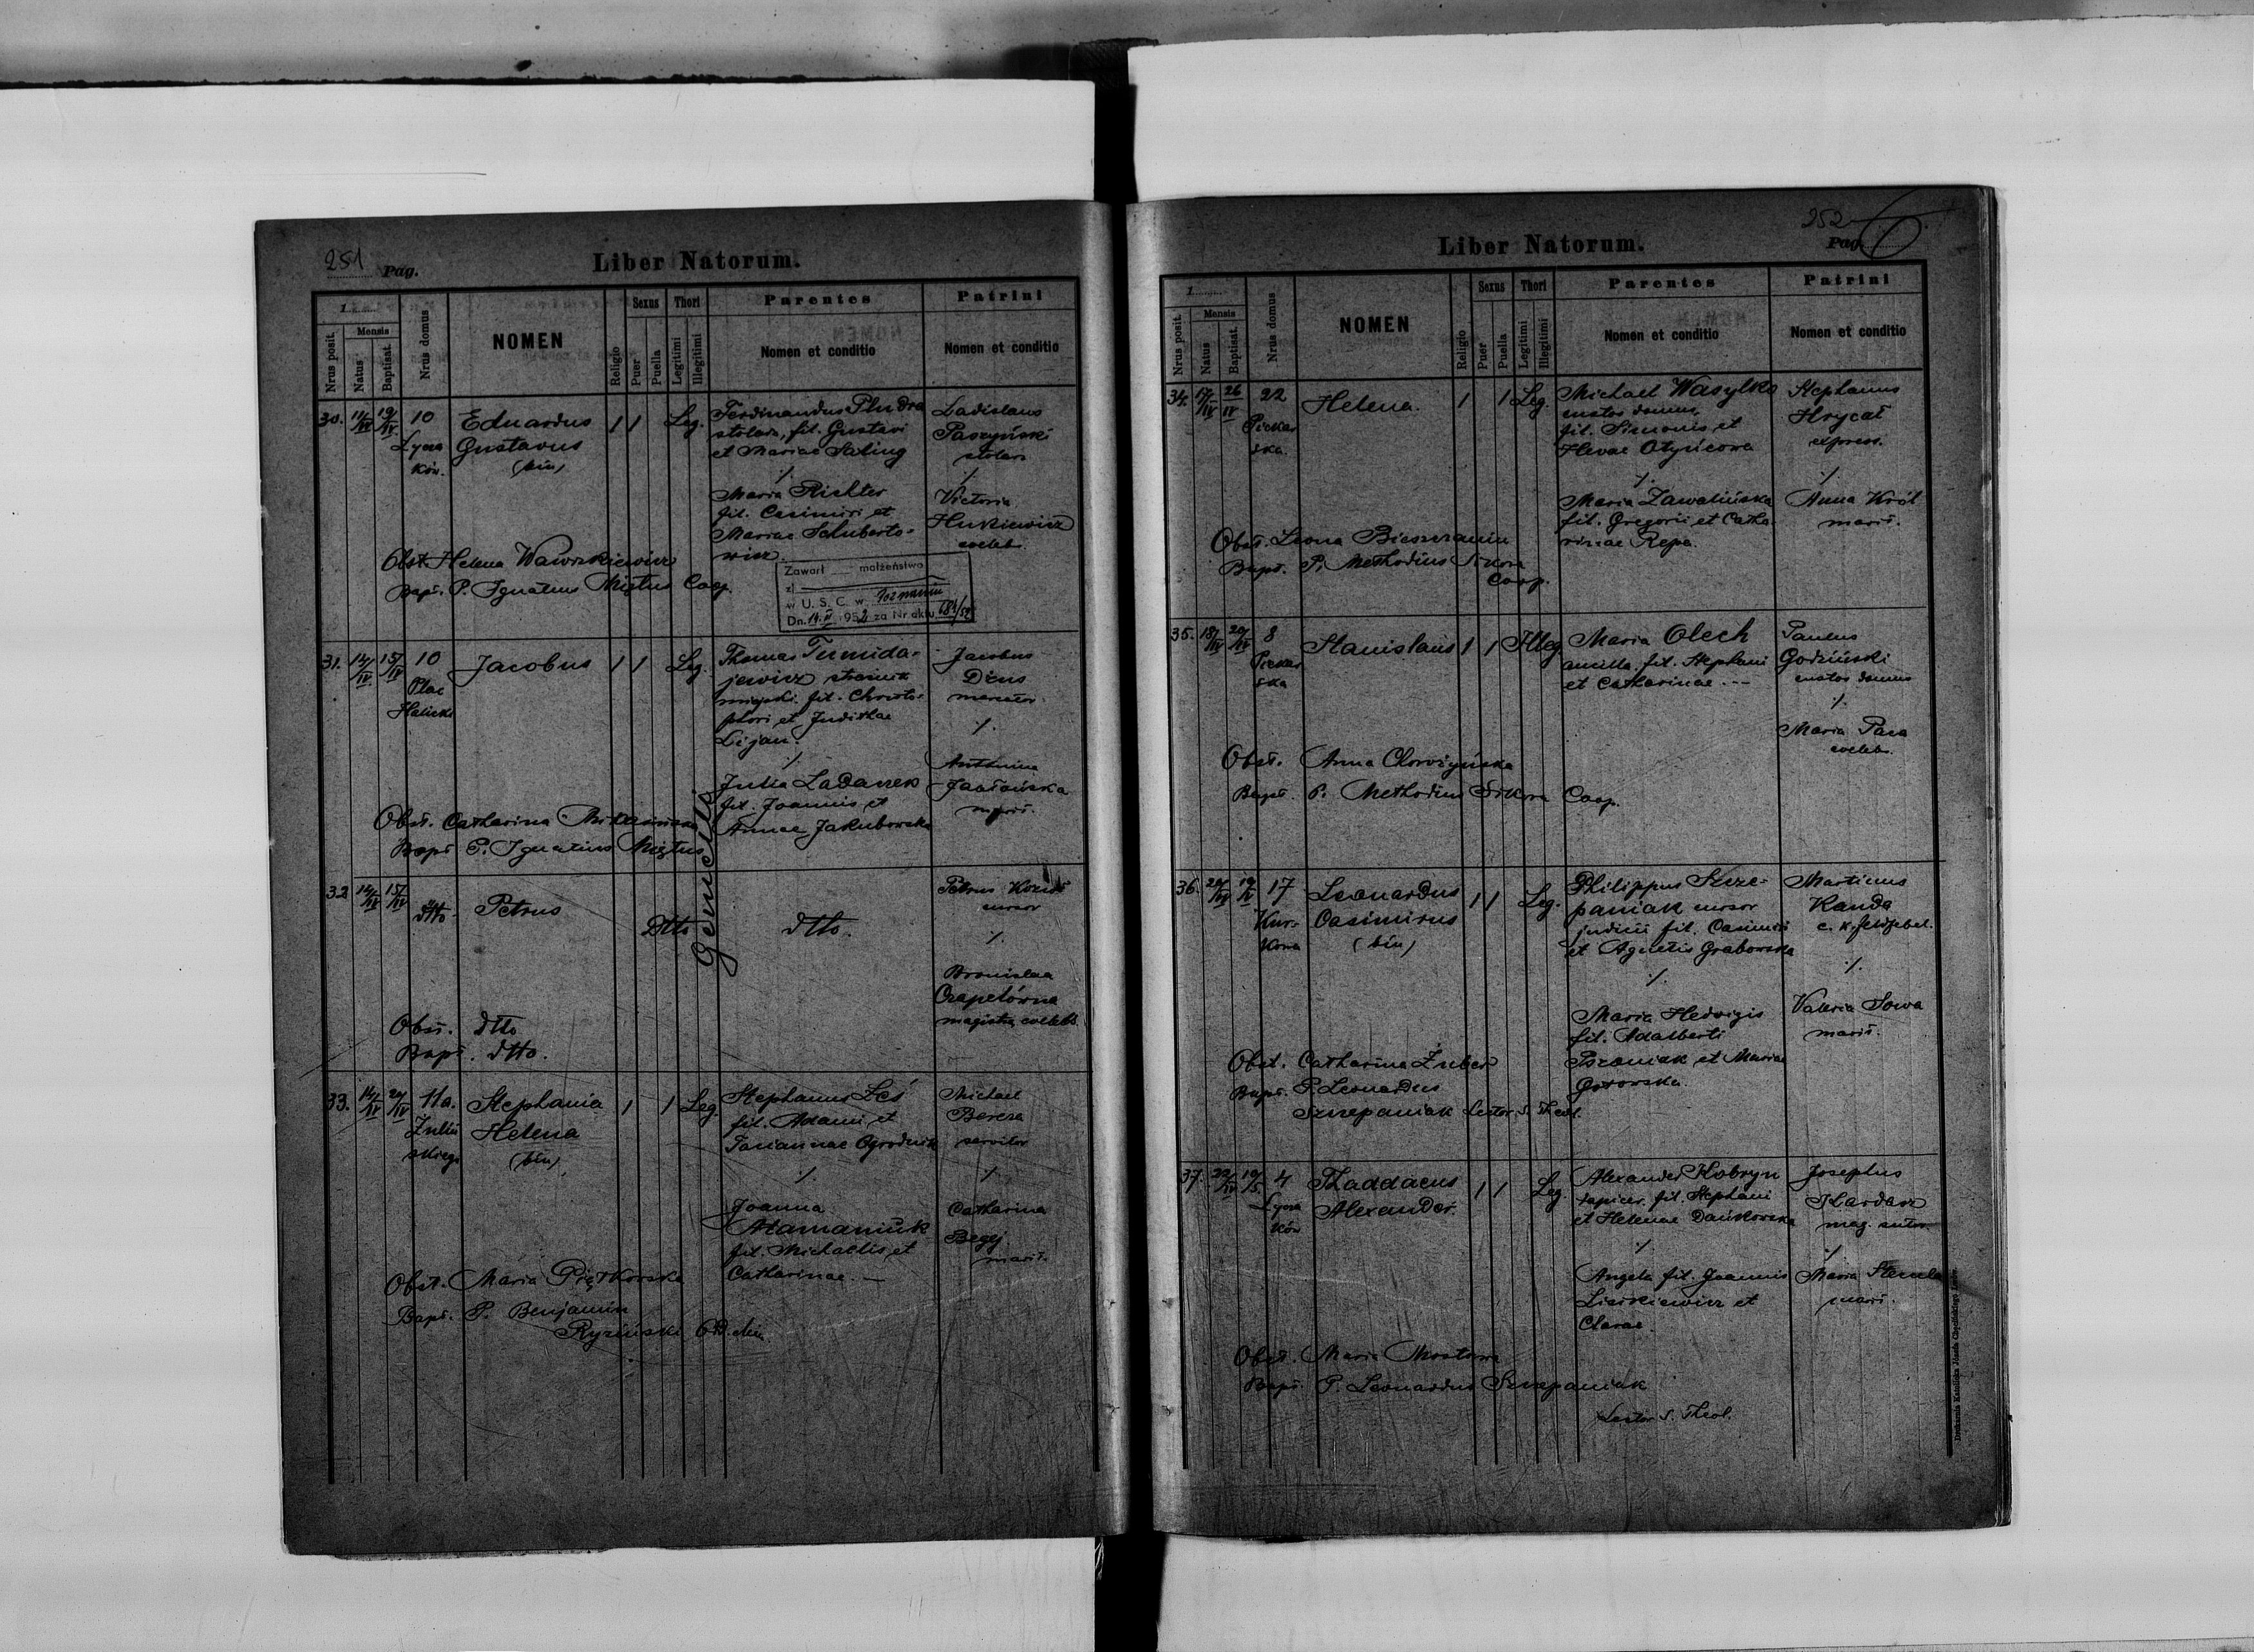 251 Pag.
Liber Natorum.
1
Nrus posit.
Mensis
Natus
Baptisat.
Nrus domus
NOMEN
Religio
Sexus
Puer
Puella
Thori
Legitimi
Illegitimi
Parentes
Nomen et conditio
Patrini
Nomen et conditio
30. 11/IV 19/IV 10
Lycza
ków.
Eduardus
Gustavus
(bin)
1 1 Leg.
Ferdinandus Pludra
stolarz, fil. Gustavi
et Mariae Saling
./.
Maria Richter
fil. Casimiri et
Mariae Schuberto-
wicz.
Ladislaus
Paszyński
stolarz
./.
Victoria
Hukiewicz
coeleb.
Obst. Helena Wawrzkiewicz
Bapt. P. Ignatius Miętus Coop.
Zawarł małżeństwo
z
w U. S. C. w Poznaniu
Dn. 14.IV 1952 za Nr aktu 681/52
31. 14/IV 15/IV 10
Plac
Halicki
Jacobus
1 1 Leg.
Thomas Tumida-
jewicz strażnik
miejski fil. Christo-
phori et Judithae
Lijan.
./.
Julia Ladanek
fil. Joannis et
Annae Jakubowska
Jacobus
Dżus
mercator.
./.
Antonina
marit.
Obst. Catharina
Bapt. P. Ignatius Miętus
Gemelli
32 14/IV 15/IV dtto.
Petrus
Dtto
dtto.
Petrus
cursor
./.
Bronislaa
Czapelówna
magistra coeleb.
Obst. dtto
Bapt. dtto.
33. 14/IV 24/IV 11a.
Zuliń
skiego
Stephania
Helena
(bin)
1 1 Leg.
Stephanus Leś
fil. Adami et
Parianae Ogrodnik
./.
Joanna
Atamaniuk
fil. Michaelis et
Catharinae —
Michael
Bereza
servitor
./.
Catharina
Begej
marit.
Obst. Maria Piętkowska
Bapt. P. Benjamin
Ryziński Ord. Min.
252
Pag.
Liber Natorum.
1
Nrus posit.
Mensis
Natus
Baptisat.
Nrus domus
NOMEN
Religio
Sexus
Puer
Puella
Thori
Legitimi
Illegitimi
Parentes
Nomen et conditio
Patrini
Nomen et conditio
34. 17/IV 26/IV 22
Piekar
ska.
Helena.
1 1 Leg.
Michael Wasylko
custos domus,
fil. Simonis et
Hevae Otyńcowa
./.
Maria Zawalińska
fil. Gregorii et Catha-
rinae Repa.
Stephanus
Hrycał
express.
./.
Anna Król
marit.
Obst. Leona Bieszczanin
Bapt. P. Methodius Sikora
Coop.
35. 18/IV 20/IV 8
Piekar
ska
Stanislaus
1 1 Illeg
Maria Olech
ancilla. fil. Stephani
et Catharinae. --
Paulus
Godziński
custos domus
./.
Maria Paca
coeleb.
Obst. Anna
Bapt. P. Methodius Sikora Coop.
36. 20/IV 17
Kur-
kowa
Leonardus
Casimirus
(bin)
1 1 Leg.
Philippus Szcze-
paniak cursor
judicii fil. Casimiri
et Agnetis Grabowska
./.
Maria Hedvigis
fil. Adalberti
Pszoniak et Mariae
Gorowska.
Martinus
Kanda
c. k. feldfebel.
./.
Valeria Sowa
marit.
Obst. Catharina Zuber
Bapt. P. Leonardus
Szczepaniak Lector S. Theol.
37. 22/IV 4
Lycza
ków
Thaddaeus
Alexander.
1 1 Leg.
Alexander Kobryn
tapicer, fil. Stephani
et Helenae Dańkowska
./.
Angela fil. Joannis
Lisikiewicz et
Clarae.
Josephus
Kardasz
mag. sutor.
./.
Maria Stecula
marit.
Obst. Maria
Bapt. P. Leonardus Szczepaniak
Lector S. Theol.